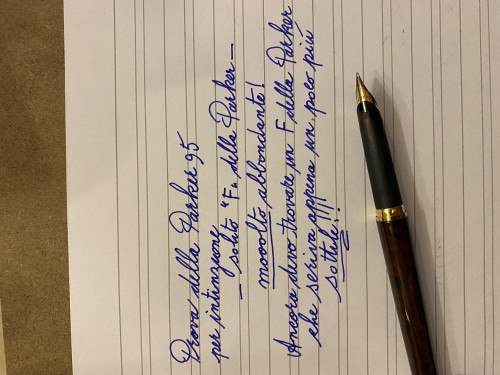 Prova della Parker 95
per intinzione
– solito "F" della Parker –
mooolto abbondante!
Ancora devo trovare un F della Parker
che scriva appena un poco più
sottile!!!!!